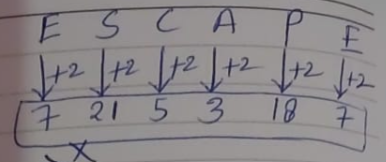 E S C A P E
↓+2 ↓+2 ↓+2 ↓+2 ↓+2 ↓+2
7 21 5 3 18 7
X